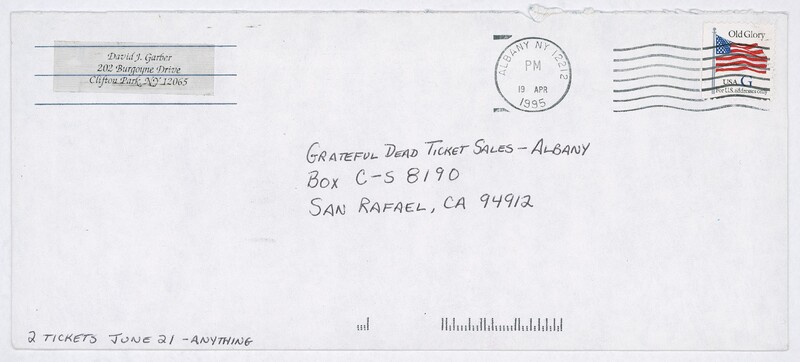 David J. Garber
202 Burgoyne Drive
Clifton Park, NY 12065
ALBANY NY 12212
PM
19 APR
1995
Old Glory
USA G
For U.S. addresses only
GRATEFUL DEAD TICKET SALES - ALBANY
BOX C-S 8190
SAN RAFAEL, CA 94912
2 TICKETS JUNE 21 - ANYTHING